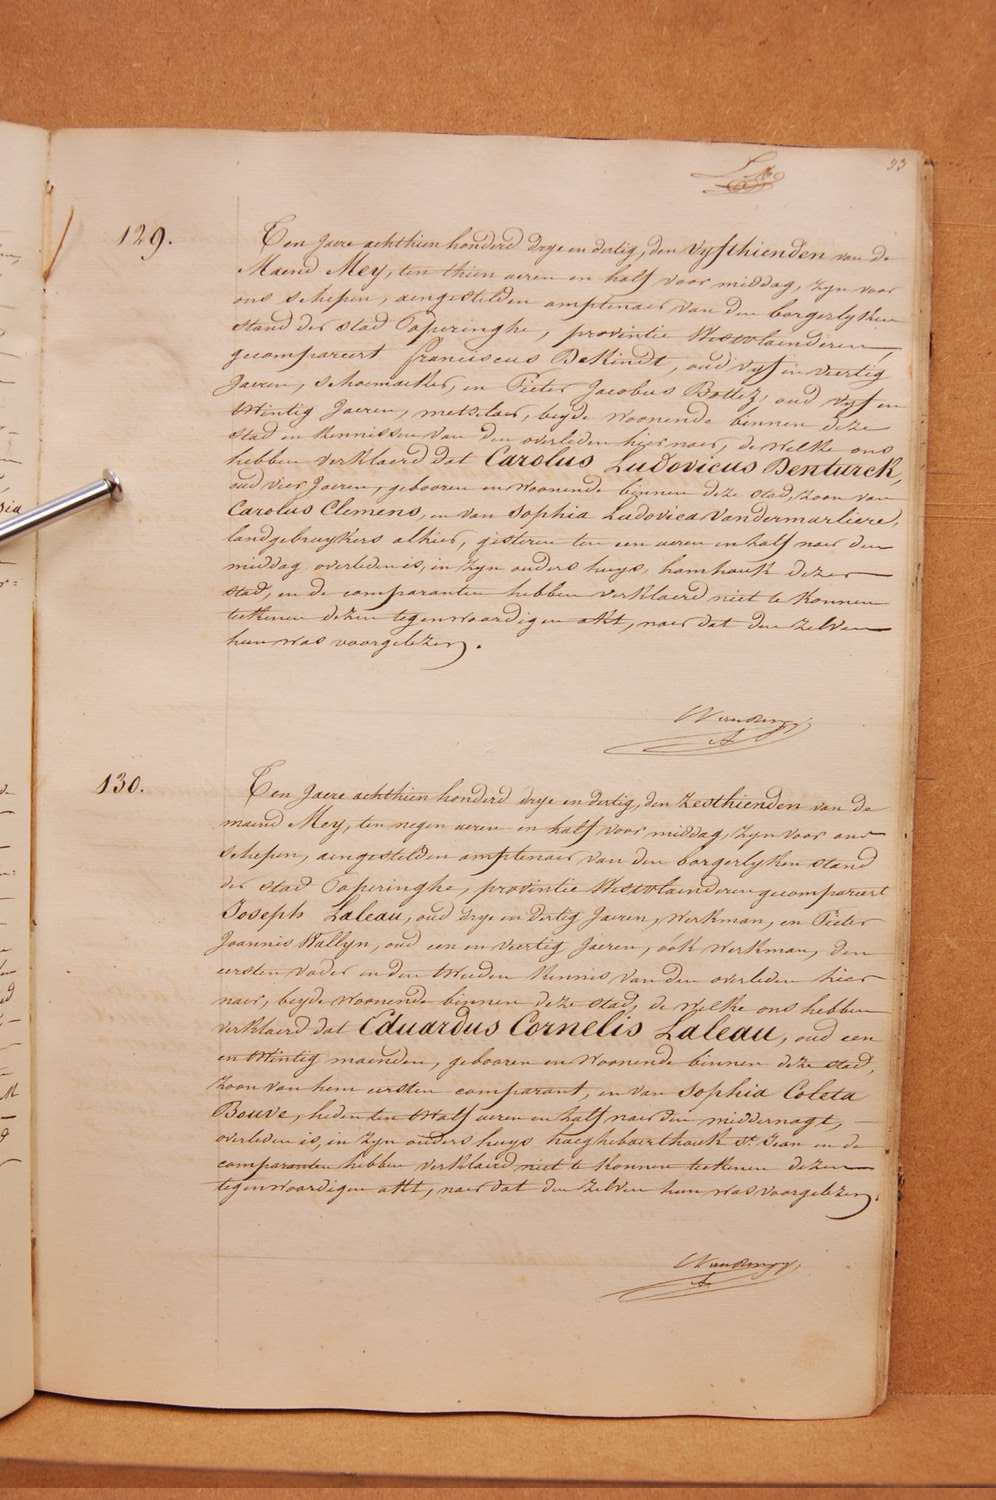 23
129.
Ten Jaere achthien honderd drye en dertig, den vyfthienden van de
Maend Mey, ten thien ueren en half voor middag, zyn voor
ons schepen, aengestelden amptenaer van den borgerlyken
stand der stad Poperinghe, provintie Westvlaenderen,
gecompareert franciscus DeKindt, oud vyf in veertig
Jaeren, schoemaeker, en Pieter Jacobus Bottez, oud vyf en
twintig Jaeren, metselaer, beyde woonende binnen deze
stad en kennissen van den overleden hier naer, de welke ons
hebben verklaerd dat Carolus Ludovicus Denturck,
oud vier Jaeren, gebooren en woonende binnen deze stad, zoon van
Carolus Clemens, en van Sophia Ludovica Vandermarliere,
landgebruykers alhier, gisteren ten een ueren en half naer den
middag overleden is, in zyn ouders huys, hamhouk dezer
stad, en de comparanten hebben verklaerd niet te konnen
teekenen dezen tegenwoordigen akt, naer dat den zelven
hun was voorgelezen.
130.
Ten Jaere achthien honderd drye en dertig, den zesthienden van de
maend Mey, ten negen ueren en half voor middag, zyn voor ons
schepen, aengestelden amptenaer van den borgerlyken stand
der stad Poperinghe, provintie Westvlaenderen gecompareert
Joseph Laleau, oud drye en dertig Jaeren, werkman, en Pieter
Joannis Wallyn, oud een en veertig Jaeren, ook werkman, den
eersten vader en den tweeden kennis van den overleden hier
naer, beyde woonende binnen deze stad, de welke ons hebben
verklaerd dat Eduardus Cornelis Laleau, oud een
en twintig maenden, gebooren en woonende binnen deze stad,
zoon van hem eersten comparant, en van Sophia Coleta
Bouve, heden ten twalf ueren en half naer den middernagt,
overleden is, in zyn ouders huys haeghebaerthouk St. Jan en de
comparanten hebben verklaerd niet te konnen teekenen dezen
tegenwoordigen akt, naer dat den zelven hun was voorgelezen.